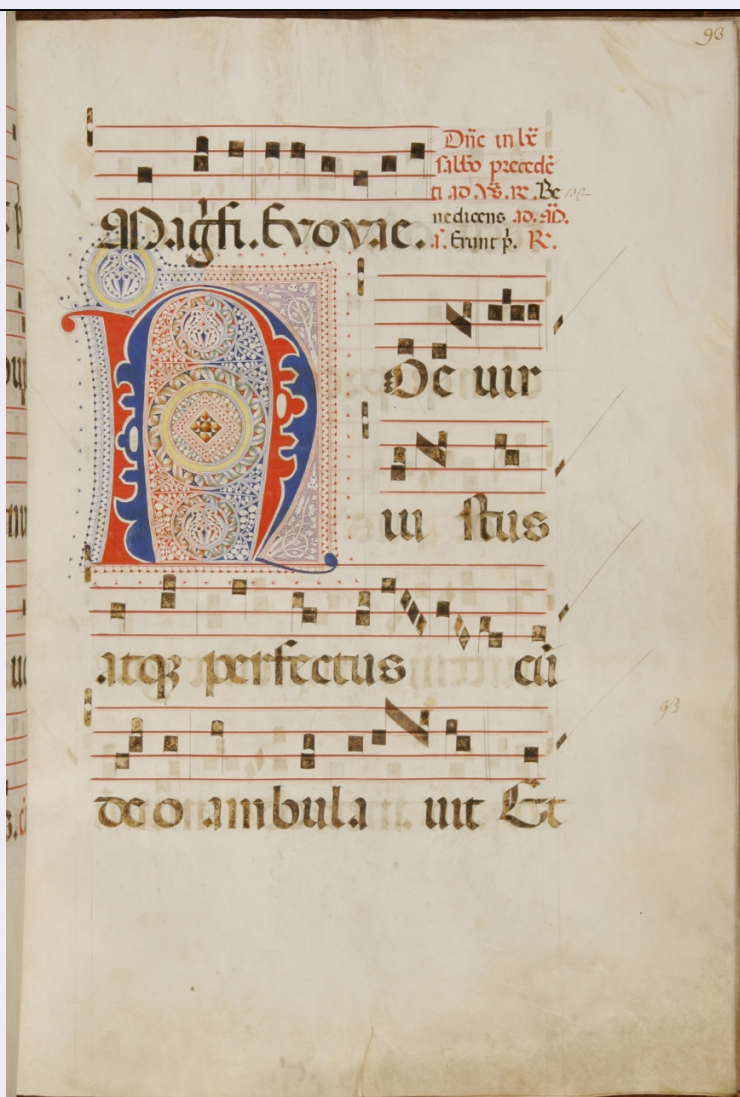 93
Dñe in lx̄
sabbo precedē
ti ad. v̄s. R. Be
nedicens ad. M̄.
a. Erunt p̄. R.
Magfi. Evovae.
Noe uir
iu stus
atqꝫ perfectus cū
deo ambula uit Et
93